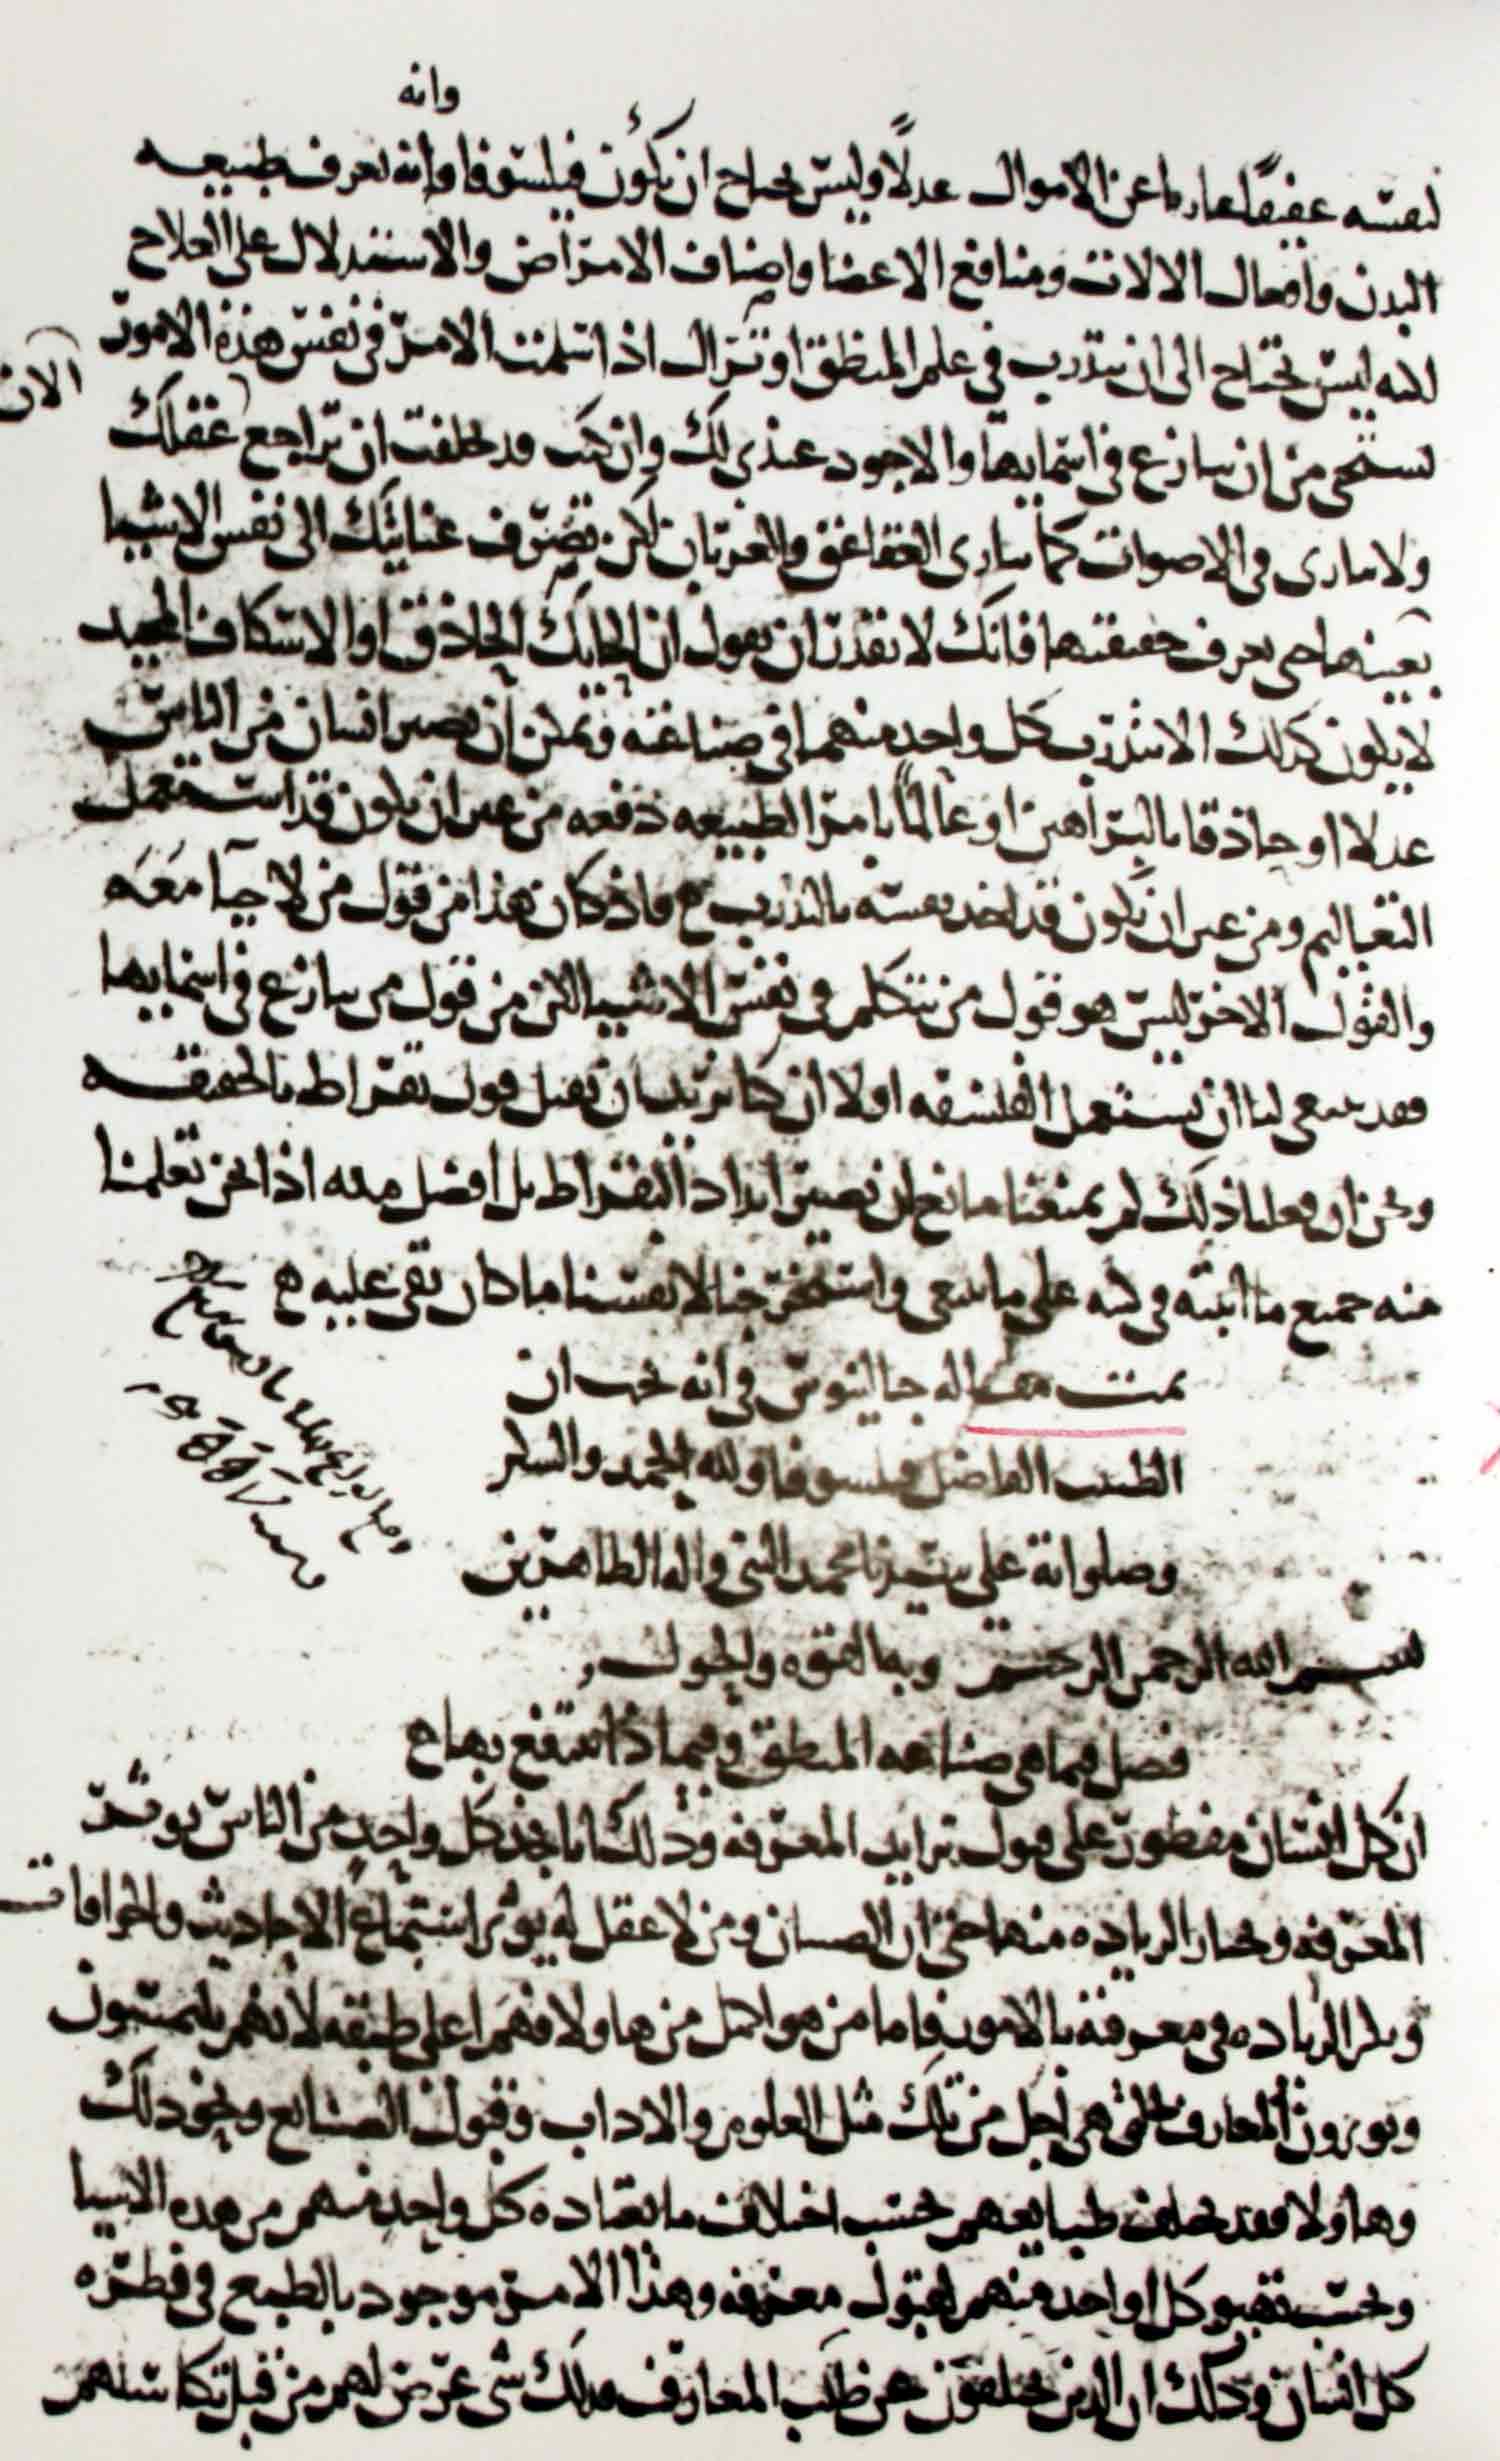 وانه
لنفسه عفيفًا عارفا عن الاموال عدلًا وليس يحتاج ان يكون فيلسوفا وانه يعرف طبيعه
البدن وافعال الالات ومنافع الاعضا واصناف الامراض والاستدلال على العلاج
لكنه ليس يحتاج الى ان يتدرب في علم المنطق او تراك اذا سلمت الامر في نفس هذه الامور
الان
تستحى من ان تنازع في اسمايها والاجود عندى لك وان كنت قد تخلفت ان تراجع عقلك
ولا تمارى في الاصوات كما تمارى العقاعق والغربان لكن تصرف عنايتك الى نفس الاشيا
بعينها حتى تعرف حقيقتها فانك لا تقدر ان تقول ان الحايك الحاذق او الاسكاف المجيد
لا يكون كذلك الا بتدرب كل واحد منهما في صناعته ويمكن ان يصير انسان من الناس
عدلا او حاذقا بالبراهين او عالمًا بامر الطبيعه دفعه من غير ان يكون قد استعمل
التعاليم ومن غير ان يكون قد اخذ نفسه بالتدرب فاذ كان هذا من قول من لا حيآ معه
والقول الاخر ليس هو قول من يتكلم في نفس الاشيا لكن من قول من ينازع في اسمايها
فقد ينبغى لنا ان نستعمل الفلسفه اولا ان كنا نريد ان نقبل قول بقراط بالحقيقه
ونحن اذا فعلنا ذلك لم يمنعنا مانع ان نصير اندادا لبقراط بل افضل منه اذا نحن تعلمنا
منه جميع ما اثبته في كتبه على ما ينبغى واستخرجنا لانفسنا ما كان بقى عليه
تمت مقاله جالينوس في انه يجب ان
الطبيب الفاضل فيلسوفا ولله الحمد والشكر
وصلواته على سيدنا محمد النبي واله الطاهرين
بسم الله الرحمن الرحيم وبه القوه والحول
فصل فيما هى صناعه المنطق وفيما ذا ينتفع بها
ان كل انسان مفطور على قبول تزايد المعرفه وذلك انا نجد كل واحدٍ من الناس يوثر
المعرفه ويختار الزياده منها حتى ان الصبيان ومن لا عقل له يوثر استماع الاحاديث والخرافات
الزياده في معرفته بالامور فاما من هو اكمل من هاولا فهم اعلى طبقه لانهم يلتمسون
ويوثرون المعارف التى هى اجل من تلك مثل العلوم والاداب وقبول الصنايع ونحو ذلك
وهاولا فقد تختلف طبايعهم بحسب اختلاف ما يعتاده كل واحد منهم من هذه الاشيا
وبحسب تهيو كل واحد منهم لقبول معرفه وهذا الامر موجود بالطبع في فطره
كل انسان وذلك ان الذين يتخلفون عن طلب المعارف فذلك شى عرض لهم من قبل تكاسلهم